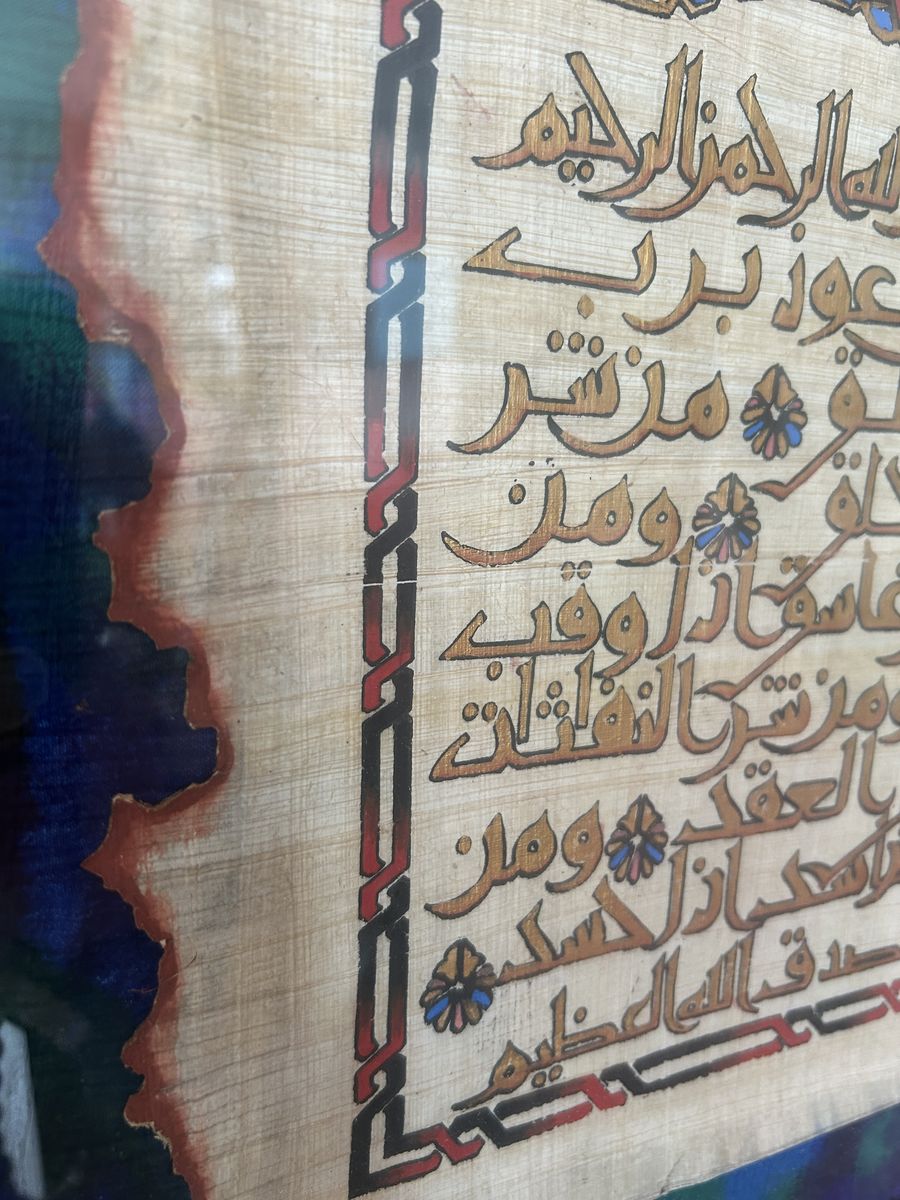 الله الرحمن الرحيم
عوذ برب
لق من شر
خلق ومن
غاسق اذا وقب
ومن شر النفاثات
بالعقد ومن
حاسد اذا حسد
صدق الله العظيم